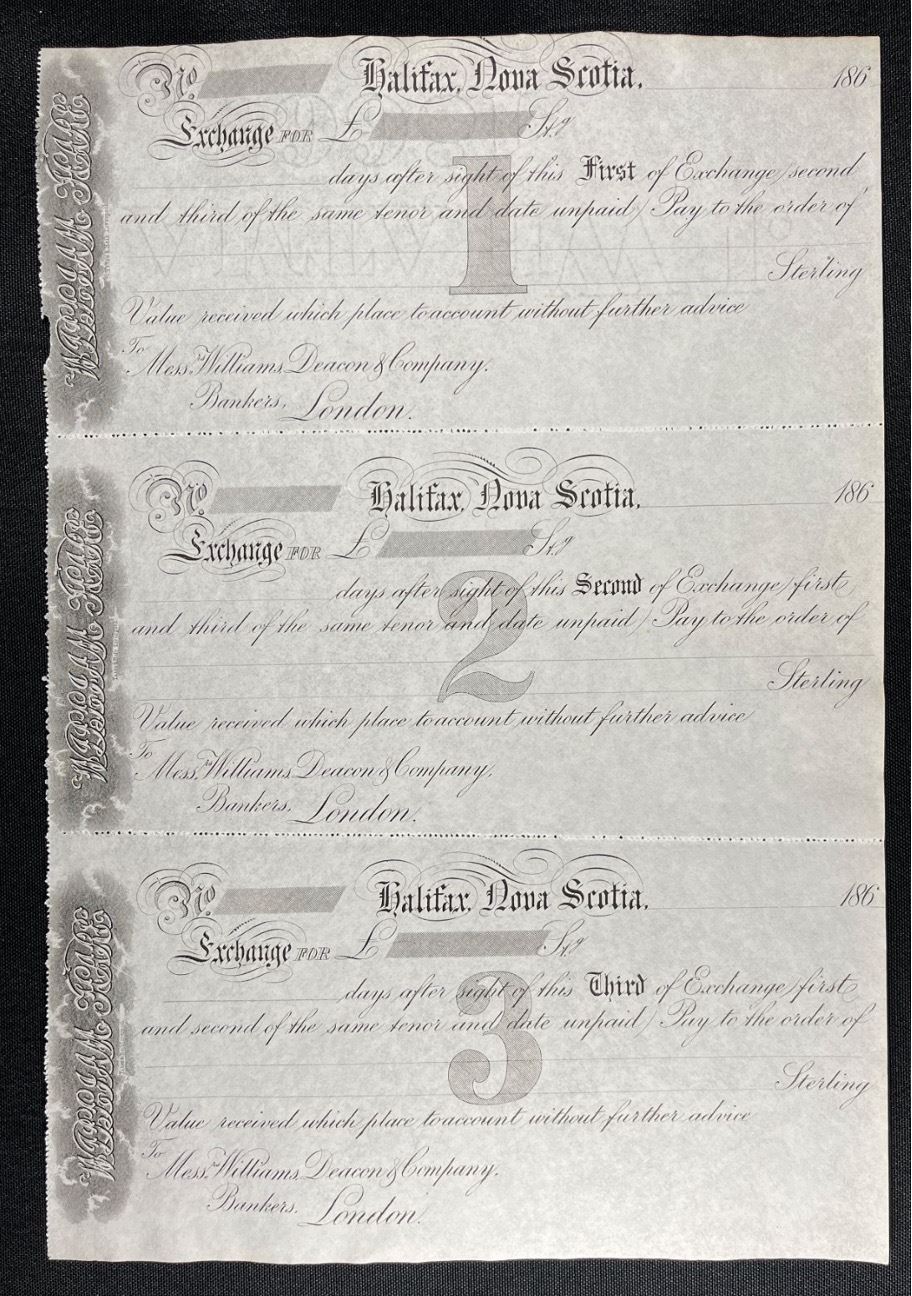 No Halifax, Nova Scotia. 186
Exchange FOR £ Stg
days after sight of this First of Exchange (second
and third of the same tenor and date unpaid) Pay to the order of
1
Sterling
Value received which place to account without further advice
To Messrs Williams, Deacon & Company,
Bankers, London.
No Halifax, Nova Scotia. 186
Exchange FOR £ Stg
days after sight of this Second of Exchange (first
and third of the same tenor and date unpaid) Pay to the order of
2
Sterling
Value received which place to account without further advice
To Messrs Williams, Deacon & Company,
Bankers, London.
No Halifax, Nova Scotia. 186
Exchange FOR £ Stg
days after sight of this Third of Exchange (first
and second of the same tenor and date unpaid) Pay to the order of
3
Sterling
Value received which place to account without further advice
To Messrs Williams, Deacon & Company,
Bankers, London.